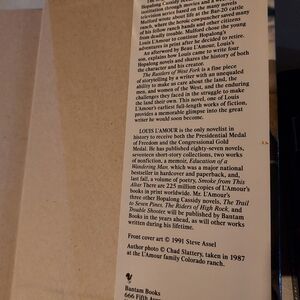 television series based on the many novels
Mulford wrote about life at the Bar-20 cattle
ranch, where the heroic cowpuncher saved many
of his fellow ranch hands and other citizens
from deadly trouble. Mulford chose the young
Louis L'Amour to continue Hopalong's
adventures in print after he decided to retire.
An afterword by Beau L'Amour, Louis's
son, explains how Louis came to write four
Hopalong novels and shares the history of both
the character and his creator.
The Rustlers of West Fork is a fine piece
of storytelling by a writer with an unequaled
ability to make us care about the land, the
men, and women of the West, and the enduring
challenges they faced in the struggle to make
the land their own. This novel, one of Louis
L'Amour's earliest full-length works of fiction,
provides a memorable glimpse into the great
writer he would soon become.
LOUIS L'AMOUR is the only novelist in
history to receive both the Presidential Medal
of Freedom and the Congressional Gold
Medal. He has published eighty-seven novels,
seventeen short-story collections, two works
of nonfiction, a memoir, Education of a
Wandering Man, which was a major national
bestseller in hardcover and paperback, and,
last fall, a volume of poetry, Smoke from This
Altar. There are 225 million copies of L'Amour's
books in print worldwide. Mr. L'Amour's
three other Hopalong Cassidy novels, The Trail
to Seven Pines, The Riders of High Rock, and
Trouble Shooter, will be published by Bantam
Books in the years ahead, as will other works
written during his lifetime.
Front cover art © 1991 Steve Assel
Author photo © Chad Slattery, taken in 1987
at the L'Amour family Colorado ranch.
Bantam Books
666 Fifth